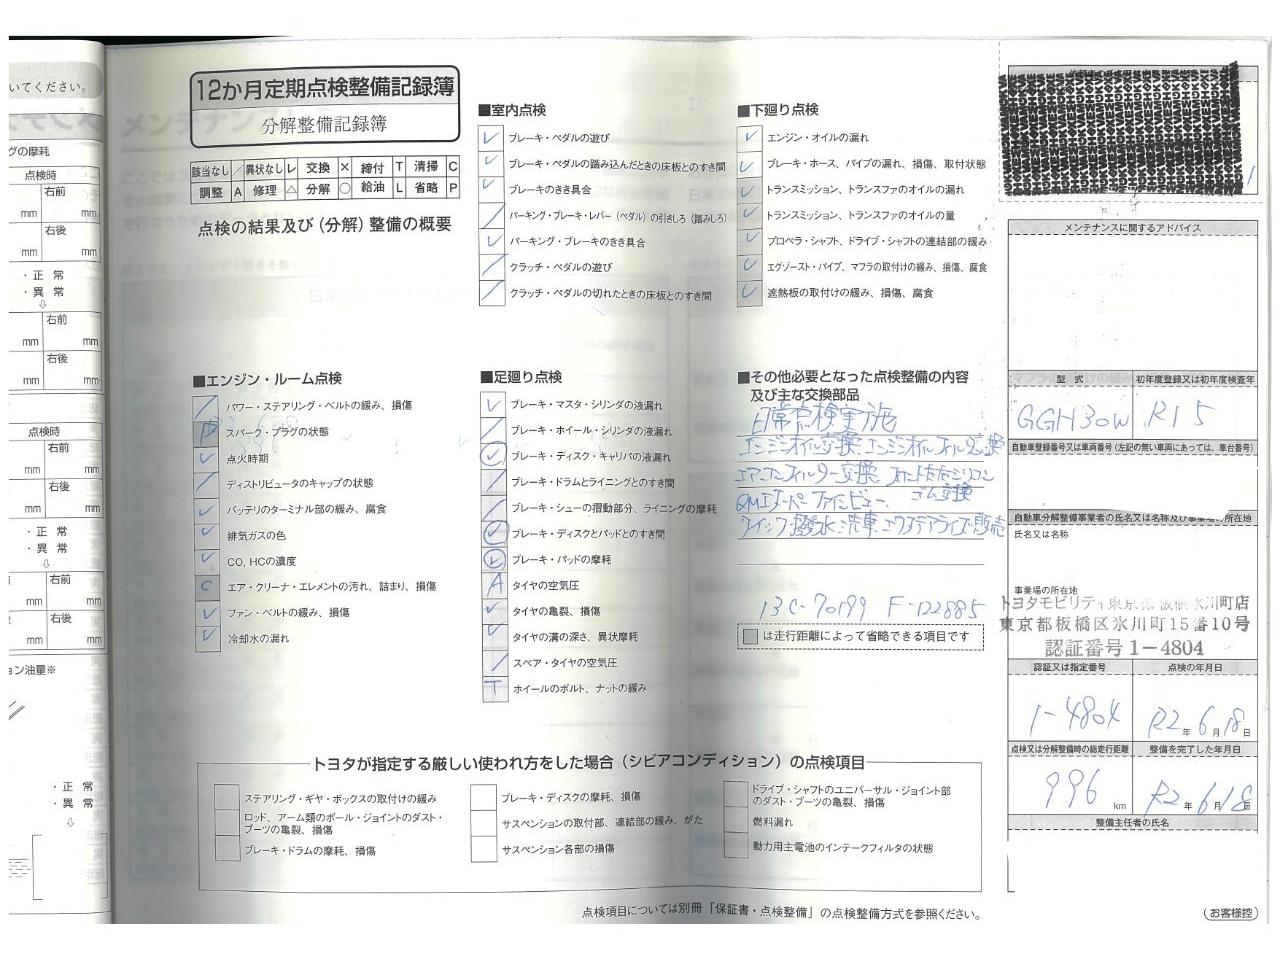 いてください。
グの摩耗
点検時
右前
mm
mm
右後
mm
mm
・正 常
・異 常
右前
mm
mm
右後
mm
mm
点検時
右前
mm
mm
右後
mm
mm
・正 常
・異 常
右前
mm
mm
右後
mm
mm
ョン油量※
・正 常
・異 常
12か月定期点検整備記録簿
分解整備記録簿
該当なし / 異状なし レ 交換 × 締付 T 清掃 C
調整 A 修理 △ 分解 ○ 給油 L 省略 P
点検の結果及び(分解)整備の概要
■エンジン・ルーム点検
パワー・ステアリング・ベルトの緩み、損傷
P スパーク・プラグの状態
点火時期
ディストリビュータのキャップの状態
バッテリのターミナル部の緩み、腐食
排気ガスの色
CO, HCの濃度
C エア・クリーナ・エレメントの汚れ、詰まり、損傷
ファン・ベルトの緩み、損傷
冷却水の漏れ
■室内点検
ブレーキ・ペダルの遊び
ブレーキ・ペダルの踏み込んだときの床板とのすき間
ブレーキのきき具合
パーキング・ブレーキ・レバー(ペダル)の引きしろ(踏みしろ)
パーキング・ブレーキのきき具合
クラッチ・ペダルの遊び
クラッチ・ペダルの切れたときの床板とのすき間
■足廻り点検
ブレーキ・マスタ・シリンダの液漏れ
ブレーキ・ホイール・シリンダの液漏れ
ブレーキ・ディスク・キャリパの液漏れ
ブレーキ・ドラムとライニングとのすき間
ブレーキ・シューの摺動部分、ライニングの摩耗
ブレーキ・ディスクとパッドとのすき間
ブレーキ・パッドの摩耗
A タイヤの空気圧
タイヤの亀裂、損傷
タイヤの溝の深さ、異状摩耗
スペア・タイヤの空気圧
T ホイールのボルト、ナットの緩み
■下廻り点検
エンジン・オイルの漏れ
ブレーキ・ホース、パイプの漏れ、損傷、取付状態
トランスミッション、トランスファのオイルの漏れ
トランスミッション、トランスファのオイルの量
プロペラ・シャフト、ドライブ・シャフトの連結部の緩み
エグゾースト・パイプ、マフラの取付けの緩み、損傷、腐食
遮熱板の取付けの緩み、損傷、腐食
■その他必要となった点検整備の内容
及び主な交換部品
日常点検実施
エンジンオイル交換、エンジンオイルフィルター交換
エアコンフィルター交換、
ゴム交換
クイック撥水洗車、
13C-70199 F-122885
は走行距離によって省略できる項目です
トヨタが指定する厳しい使われ方をした場合(シビアコンディション)の点検項目
ステアリング・ギヤ・ボックスの取付けの緩み
ロッド、アーム類のボール・ジョイントのダスト・
ブーツの亀裂、損傷
ブレーキ・ドラムの摩耗、損傷
ブレーキ・ディスクの摩耗、損傷
サスペンションの取付部、連結部の緩み、がた
サスペンション各部の損傷
ドライブ・シャフトのユニバーサル・ジョイント部
のダスト・ブーツの亀裂、損傷
燃料漏れ
動力用主電池のインテークフィルタの状態
点検項目については別冊「保証書・点検整備」の点検整備方式を参照ください。
メンテナンスに関するアドバイス
型 式
初年度登録又は初年度検査年
GGH30W
R1 5
自動車登録番号又は車両番号(左記の無い車両にあっては、車台番号)
自動車分解整備事業者の氏名又は名称及び事業場の所在地
氏名又は名称
事業場の所在地
トヨタモビリティ東京㈱板橋氷川町店
東京都板橋区氷川町15番10号
認証番号1-4804
認証又は指定番号
点検の年月日
1-4804
R2年6月18日
点検又は分解整備時の総走行距離
整備を完了した年月日
996 km
R2年6月18日
整備主任者の氏名
(お客様控)